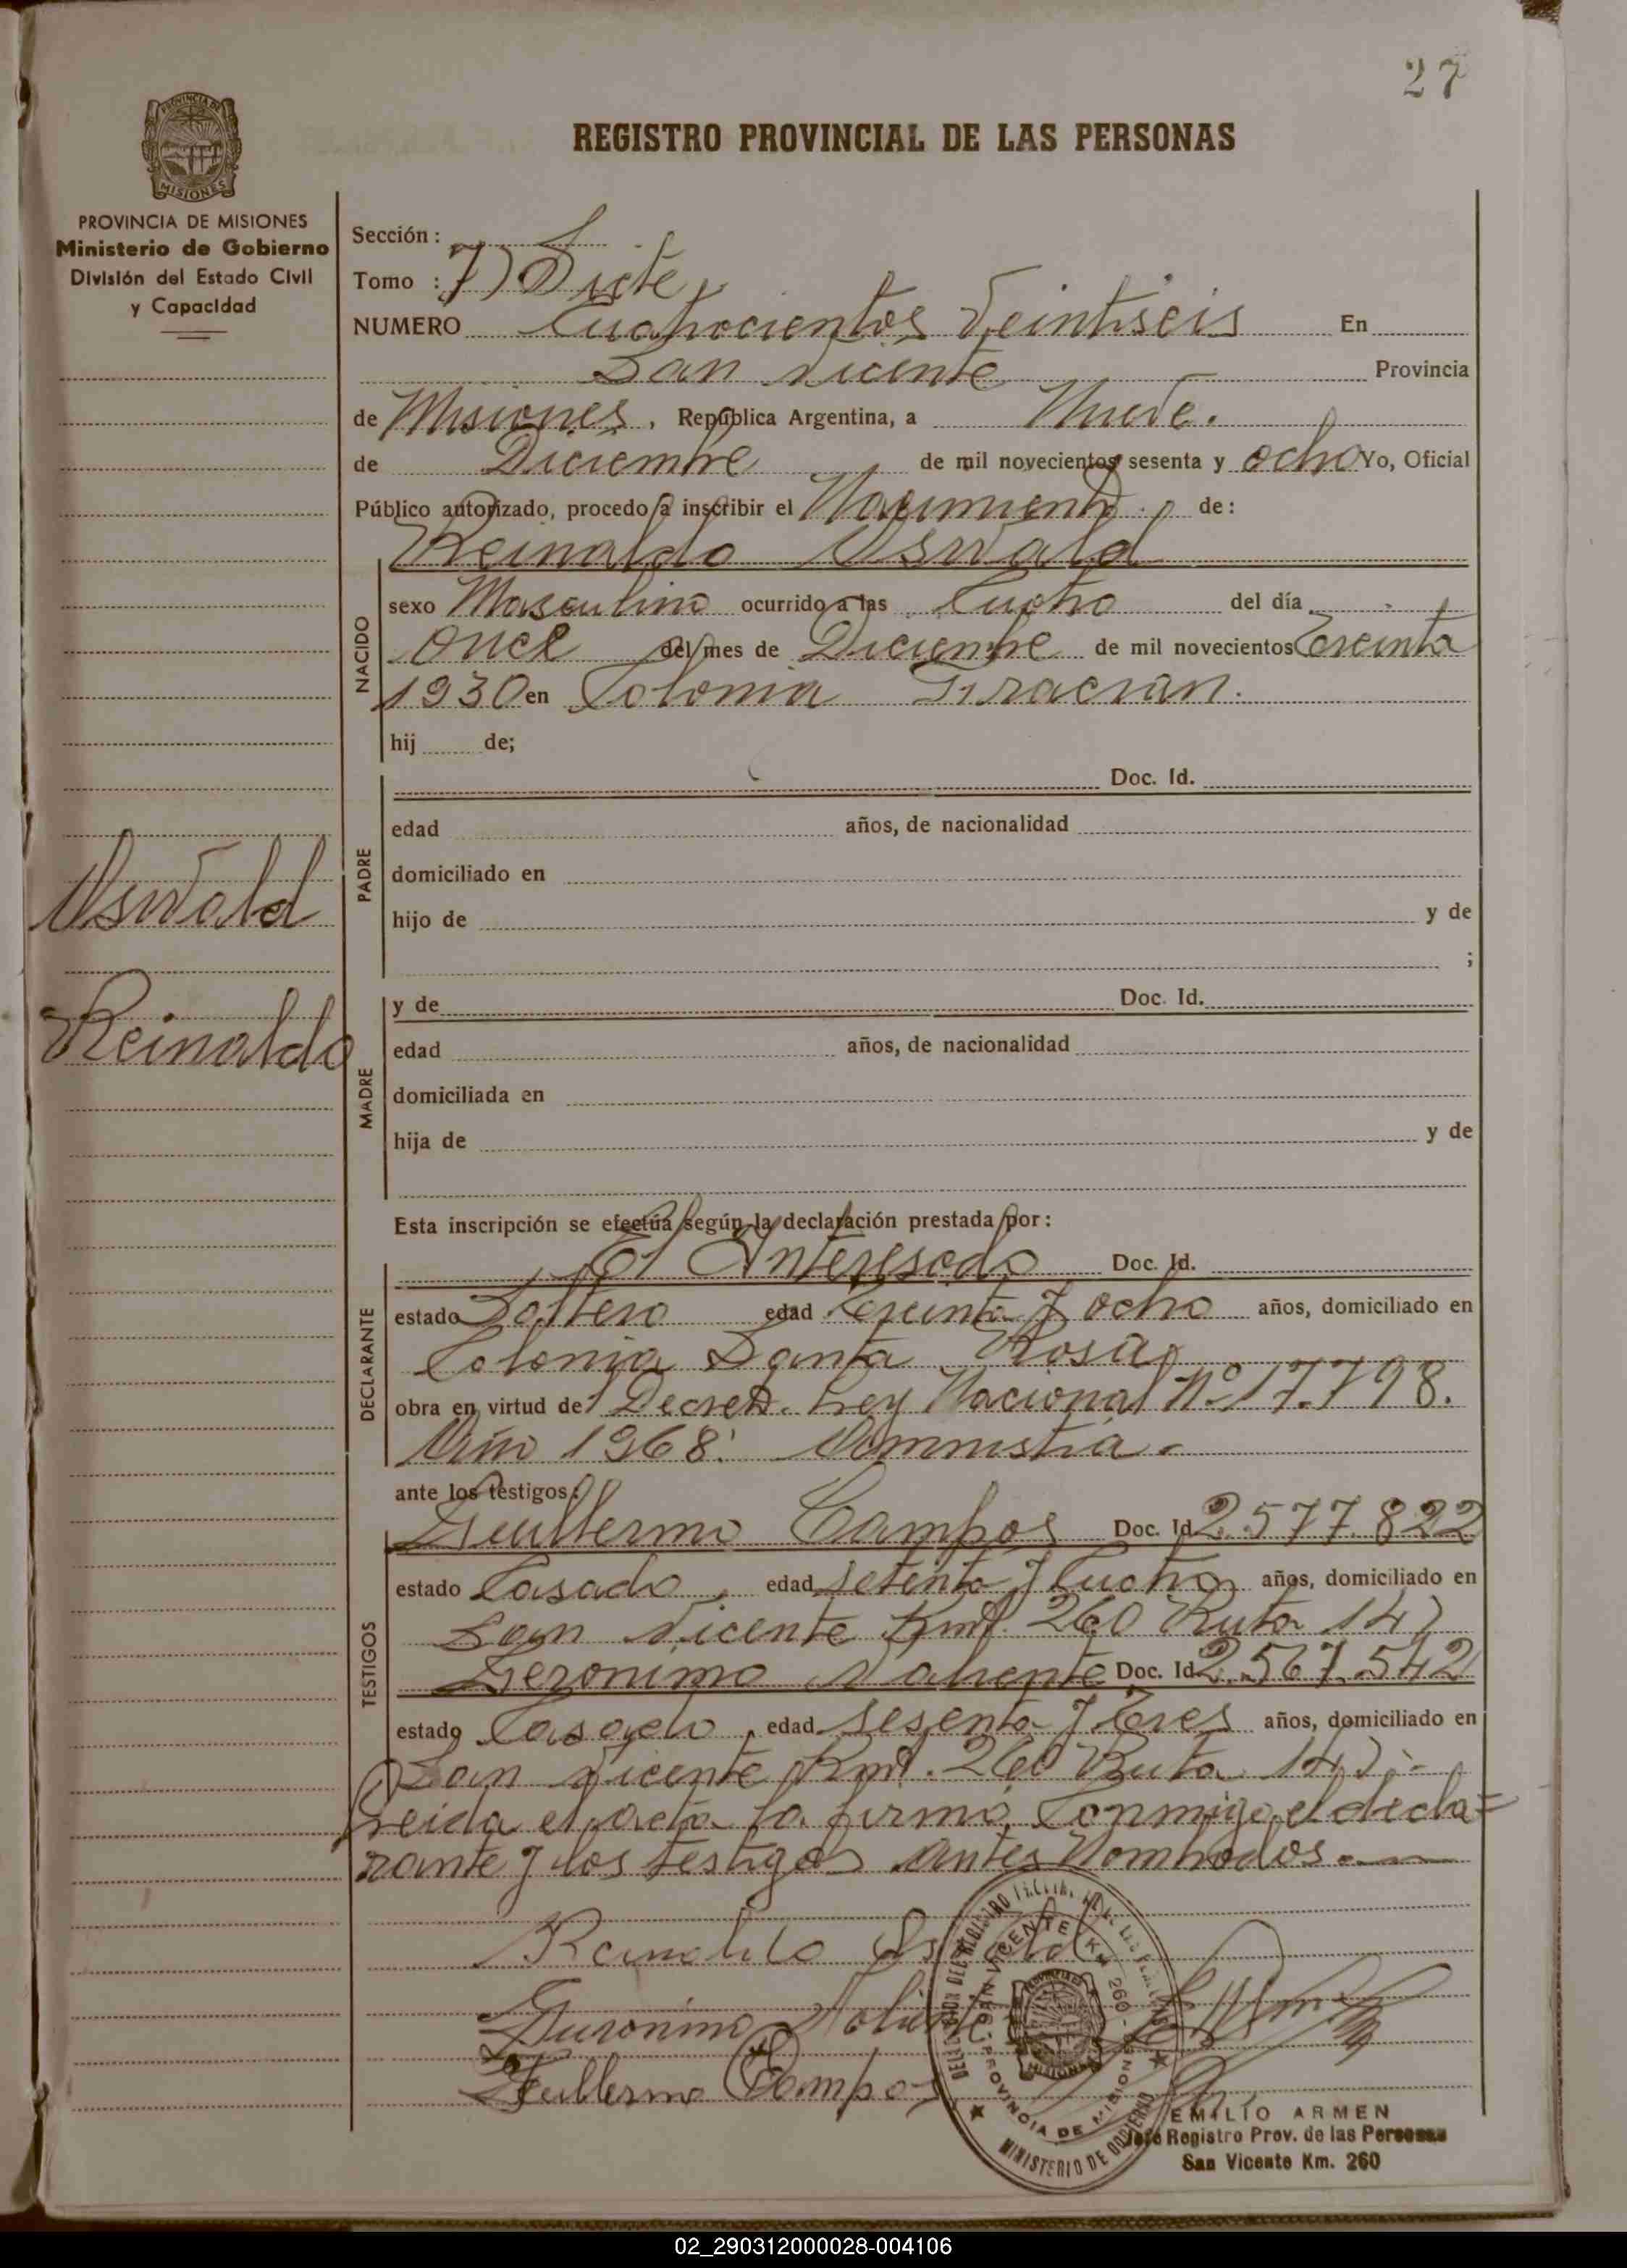 27
PROVINCIA DE
MISIONES
REGISTRO PROVINCIAL DE LAS PERSONAS
PROVINCIA DE MISIONES
Ministerio de Gobierno
División del Estado Civil
y Capacidad
Sección :
Tomo : 7) Siete,
NUMERO Cuatrocientos Veintiseis En
San Vicente Provincia
de Misiones, República Argentina, a Nueve.
de Diciembre de mil novecientos sesenta y ocho Yo, Oficial
Público autorizado, procedo a inscribir el Nacimiento de :
Reinaldo Oswald
NACIDO
sexo Masculino ocurrido a las Cuatro del día
once del mes de Diciembre de mil novecientos Treinta
1930 en Colonia Tiracian.
hij de;
PADRE
Doc. Id.
edad años, de nacionalidad
domiciliado en
hijo de y de
;
Oswald
Reinaldo
MADRE
y de Doc. Id.
edad años, de nacionalidad
domiciliada en
hija de y de
Esta inscripción se efectúa según la declaración prestada por :
DECLARANTE
El Interesado Doc. Id.
estado Soltero edad Treinta y ocho años, domiciliado en
Colonia Santa Rosa,
obra en virtud del Decreto Ley Nacional Nº 17.798.
Año 1968. Amnistia.-
ante los testigos :
TESTIGOS
Guillermo Campos Doc. Id 2.577.822
estado Casado, edad setenta y Cuatro años, domiciliado en
San Vicente Kmt. 260 Ruta 14)
Geronimo Valiente Doc. Id 2.567.542
estado Casado, edad sesenta y Tres años, domiciliado en
San Vicente Kmt. 260 Ruta 14).-
Leida el acta la firmó, Conmigo, el decla=
rante y los testigos antes Nombrados.
Reinaldo
Geronimo Valiente
Guillermo Campos
SAN VICENTE KM 260 - PROVINCIA DE MISIONES
MINISTERIO DE GOBIERNO
EMILIO ARMEN
Jefe Registro Prov. de las Personas
San Vicente Km. 260
02_290312000028-004106